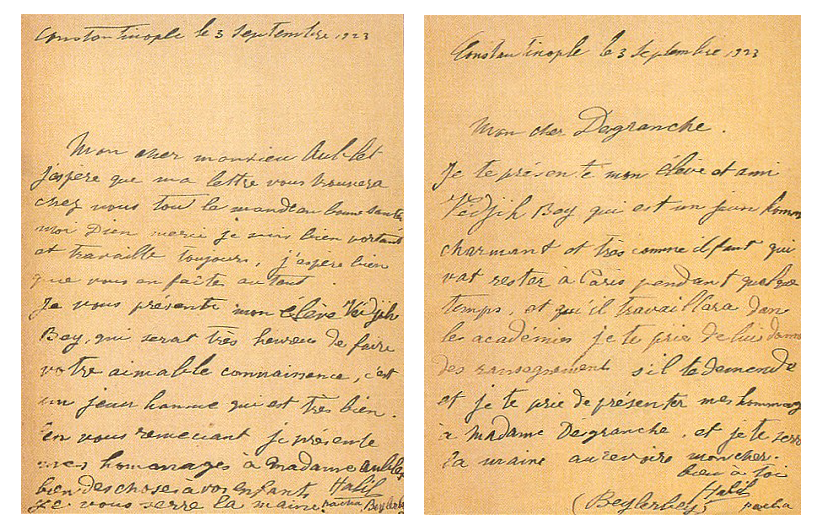 Constantinople le 3 Septembre 1923
Mon cher monsieu Aublet
J'espere que ma lettre vous trouvera
chez vous tout la monde au bonne santé
moi Dieu merci je suis bien portant
et travaille toujours, j'espere bien
que vous en faite autent.
Je vous présente mon élève Védjih
Bey, qui serat très heureu de faire
votre aimable connaissance, c'est
un jeun homme qui est très bien.
en vous remeciant je présente
mes homanages à madame aublet
bien des choses à vos enfants Halil
je vous serre la maine. pacha Beylerbey
Constantinople le 3 Septembre 1923
Mon cher Degranche.
Je te présente mon élève et ami
Védjih Bey qui est un jeun homm
charmant et très comme il faut qui
vat rester à Paris pendant quelque
temps, et qu'il travaillara dans
le académies je te prie de lui donne
des ransegnement s il te demende
et je te prie de présenter mes hommag
à madame Degranche, et je te serre
la maine au revoire mon cher.
bien à toi
Halil
(Beylerbey) pacha